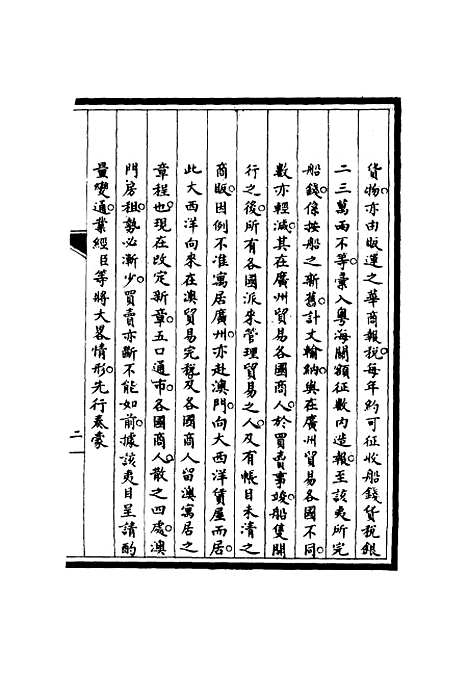 貨物亦由販運之華商報税每年約可征收船錢貨税銀
二三萬兩不等彙入粤海關額征數内造報至該夷所完
船錢係按船之新舊計丈輸納與在廣州貿易各國不同
數亦輕減其在廣州貿易各國商人於買賣事竣船隻開
行之後所有各國派來管理貿易之人及有帳目未清之
商販因例不准寓居廣州亦赴澳門向大西洋賃屋而居
此大西洋向來在澳貿易完税及各國商人留澳寓居之
章程也現在改定新章五口通市各國商人散之四處澳
門房租勢必漸少買賣亦斷不能如前據該夷目呈請酌
量變通業經臣等將大畧情形先行奏蒙
二